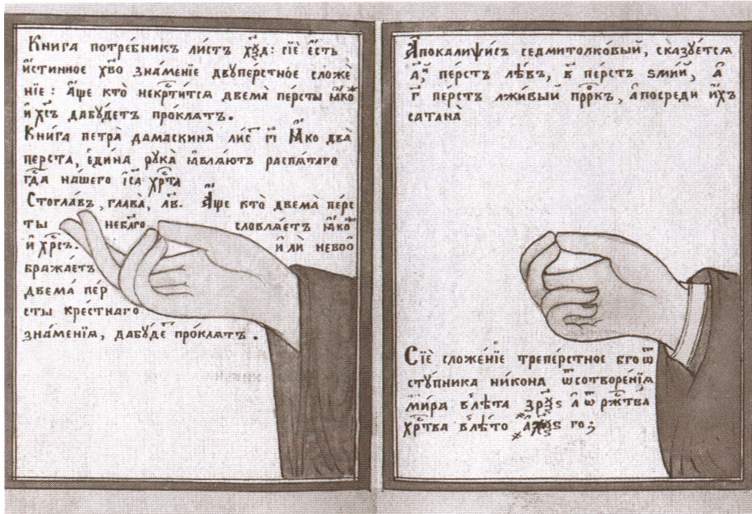 Книга потре́бникъ ли́стъ х҃ѯд: сїѐ є҆́сть
и҆́стинное хв҃о зна́менїе двꙋпе́рстное сложе́
нїе: а҆́ще кто̀ некрⷭ҇ти́тсѧ двема̀ пе́рсты ꙗ҆́коⷤ
и҆ хс҃ъ дабꙋ́детъ про́клѧтъ.
Кни́га петра̀ дамаскина̀ лиⷭ҇ г҃і ꙗ҆́ко два̀
перста, є҆ди́на рꙋка̀ ꙗ҆влѧ́ютъ распѧ́таго
гдⷭ҇а на́шего і҆са҃ хрⷭ҇та̀
Стогла́въ, глава̀, л҃в. А҆́ще кто̀ двема̀ пе́рс
ты небл҃го словлѧ́етъ ꙗ҆́коⷤ
и҆ хрⷭ҇съ. и҆́ли невоѻ
бража́етъ
двема̀ пе́р
сты кре́стнаго
зна́менїѧ, дабꙋ́деⷮ про́клѧтъ.
А҆покали́ѱисъ седмитолко́вый, сказꙋ́етсѧ
а҃, пе́рстъ ле́въ, в҃ пе́рстъ ѕмі́й, а҆
г҃ пе́рстъ лжи́вый прⷪ҇ро́къ, а҆ посредѝ и҆́хъ
сатана̀
Сїѐ сложе́нїе трепе́рстное бг҃оѿ
стꙋ́пника ни́кона ѿсотворе́нїѧ
ми́ра влѣ́та зрⷣꙋѕ а҆ ѿ ржⷭ҇тва̀
хрⷭ҇тва влѣ́то го;